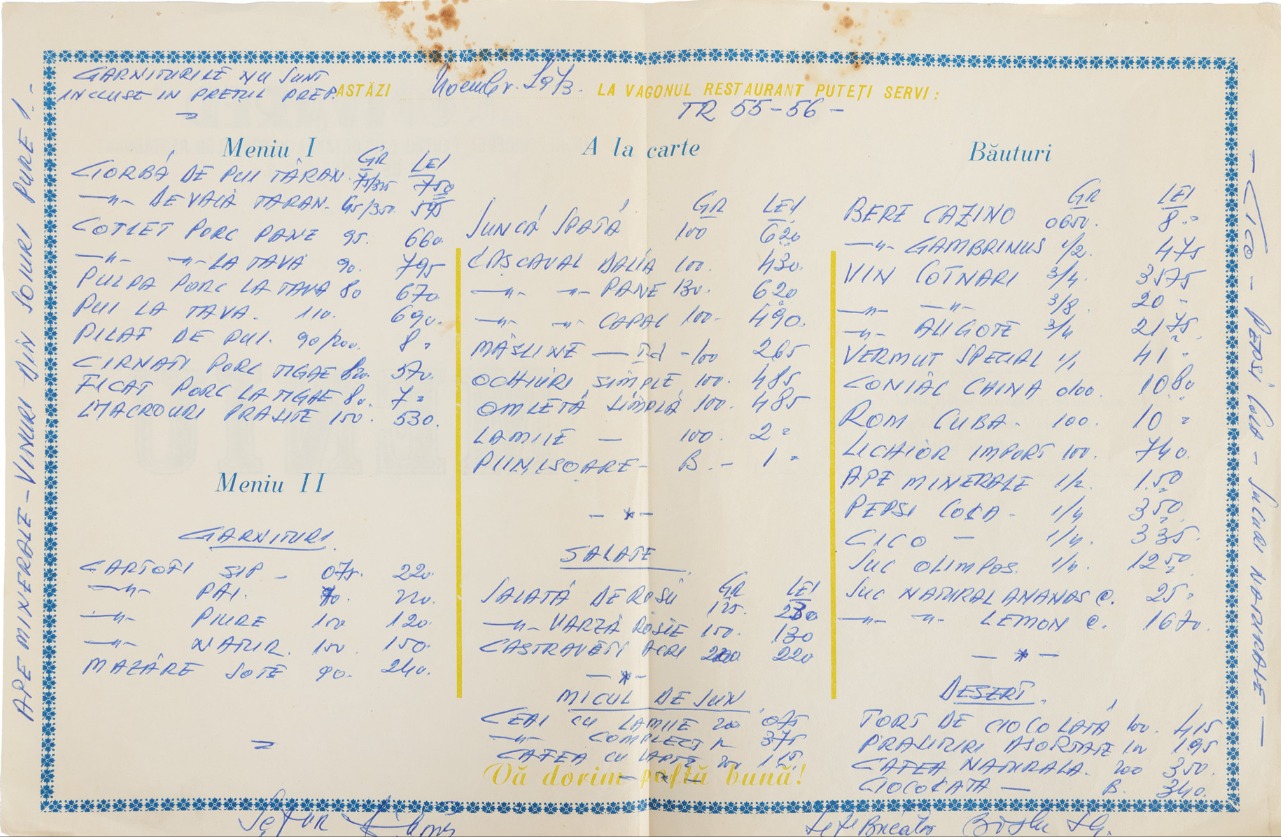 GARNITURILE NU SUNT
INCLUSE IN PRETUL PREP.
ASTĂZI Noembr. 1973. LA VAGONUL RESTAURANT PUTEȚI SERVI:
TR 55-56 -
Meniu I
GR LEI
CIORBĂ DE PUI TĂRAN. 75/350 750
-"- DE VACĂ TARAN. 45/350 595
COTLET PORC PANE 95. 660
-"- -"- LA TAVĂ 90. 795
PULPA PORC LA TAVA 80 670
PUI LA TAVA. 110. 690
PILAF DE PUI. 90/200. 8 =
CIRNATI PORC TIGAE 570
FICAT PORC LA TIGAE 80. 7 =
MACROURI PRAJITE 150. 530
Meniu II
GARNITURI
CARTOFI 075 220
-"- PAI. 70. 220
-"- PIURE 150 120
-"- NATUR. 150. 150.
MAZĂRE SOTE 90. 240.
A la carte
GR LEI
JUNCĂ SPATĂ 100 620
CASCAVAL DALIA 100. 430
-"- -"- PANE 130. 620
-"- -"- CAPAC 100. 490.
MĂSLINE - 100 265
OCHIURI SIMPLE 100. 485
OMLETĂ SIMPLĂ 100. 485
LAMIIE - 100. 2 =
PIINISOARE - B. - 1 =
- * -
SALATE
GR LEI
SALATĂ DE ROSII 125. 280
-"- VARZĂ ROSIE 150. 130
CASTRAVETI ACRI 200 220
- * -
MICUL DEJUN
CEAI CU LAMIIE 200 075
-"- COMPLECT 375
CAFEA CU LAPTE 200 125.
Vă dorim poftă bună!
Băuturi
GR LEI
BERE CAZINO 0650. 8 =
-"- GAMBRINUS 1/2. 475
VIN COTNARI 3/4 3575
-"- -"- 3/8. 20 -
-"- ALIGOTE 3/4 2175
VERMUT SPECIAL 1/1 41 -
CONIAC CHINA 0100. 1080
ROM CUBA - 100. 10 =
LICHIOR IMPORT 100. 740.
APE MINERALE 1/2. 1.50
PEPSI COLA - 1/4 350
CICO - 1/4. 335.
SUC OLIMPOS. 1/4. 1250
SUC NATURAL ANANAS C. 25 =
-"- -"- LEMON C. 1670.
- * -
DESERT.
TORT DE CIOCOLATĂ 100. 415
PRAJITURI ASORTATE 100 195
CAFEA NATURALA. 200 350.
CIOCOLATA - B. 340.
APE MINERALE - VINURI DIN SOIURI PURE! -
- CICO - PEPSI COLA - SUCURI NATURALE -